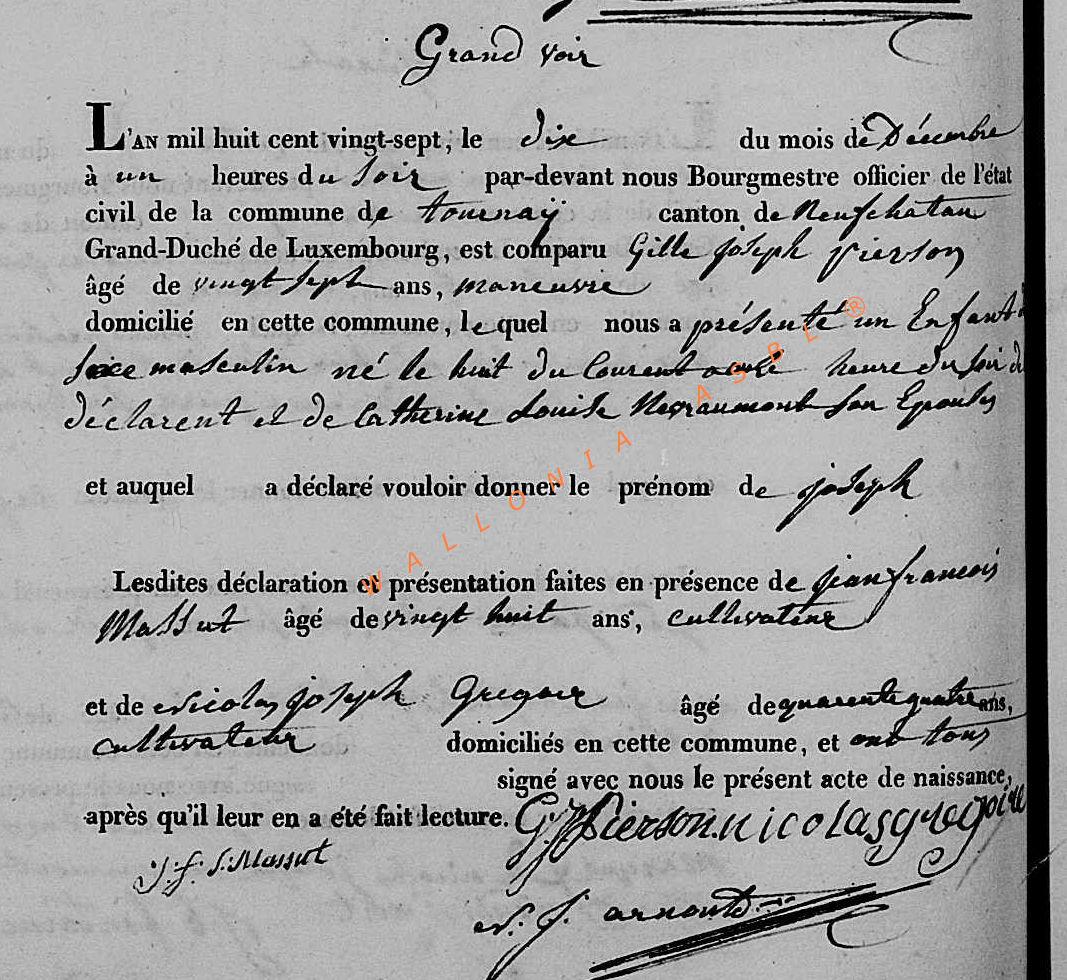 Grand voir
L'AN mil huit cent vingt-sept, le dix du mois de Décembre
à un heures du soir par-devant nous Bourgmestre officier de l'état
civil de la commune de tournaÿ canton de Neufchatau
Grand-Duché de Luxembourg, est comparu Gille joseph pierson
âgé de vingt sept ans, maneuvre
domicilié en cette commune, lequel nous a présenté un Enfant
sexe masculin né le huit du Courent heure du soir du
déclarent et de Catherine Louise Son Epouse
et auquel a déclaré vouloir donner le prénom de joseph
Lesdites déclaration et présentation faites en présence de jean francois
Massut âgé de vingt huit ans, cultivateur
et de Nicolas joseph Gregoir âgé de quarente quatre ans,
cultivateur domiciliés en cette commune, et ont tous
signé avec nous le présent acte de naissance,
après qu'il leur en a été fait lecture. G J Pierson nicolas gregoire
j. f. S. Massut
N. J. arnould
WALLONIA ASBL ®